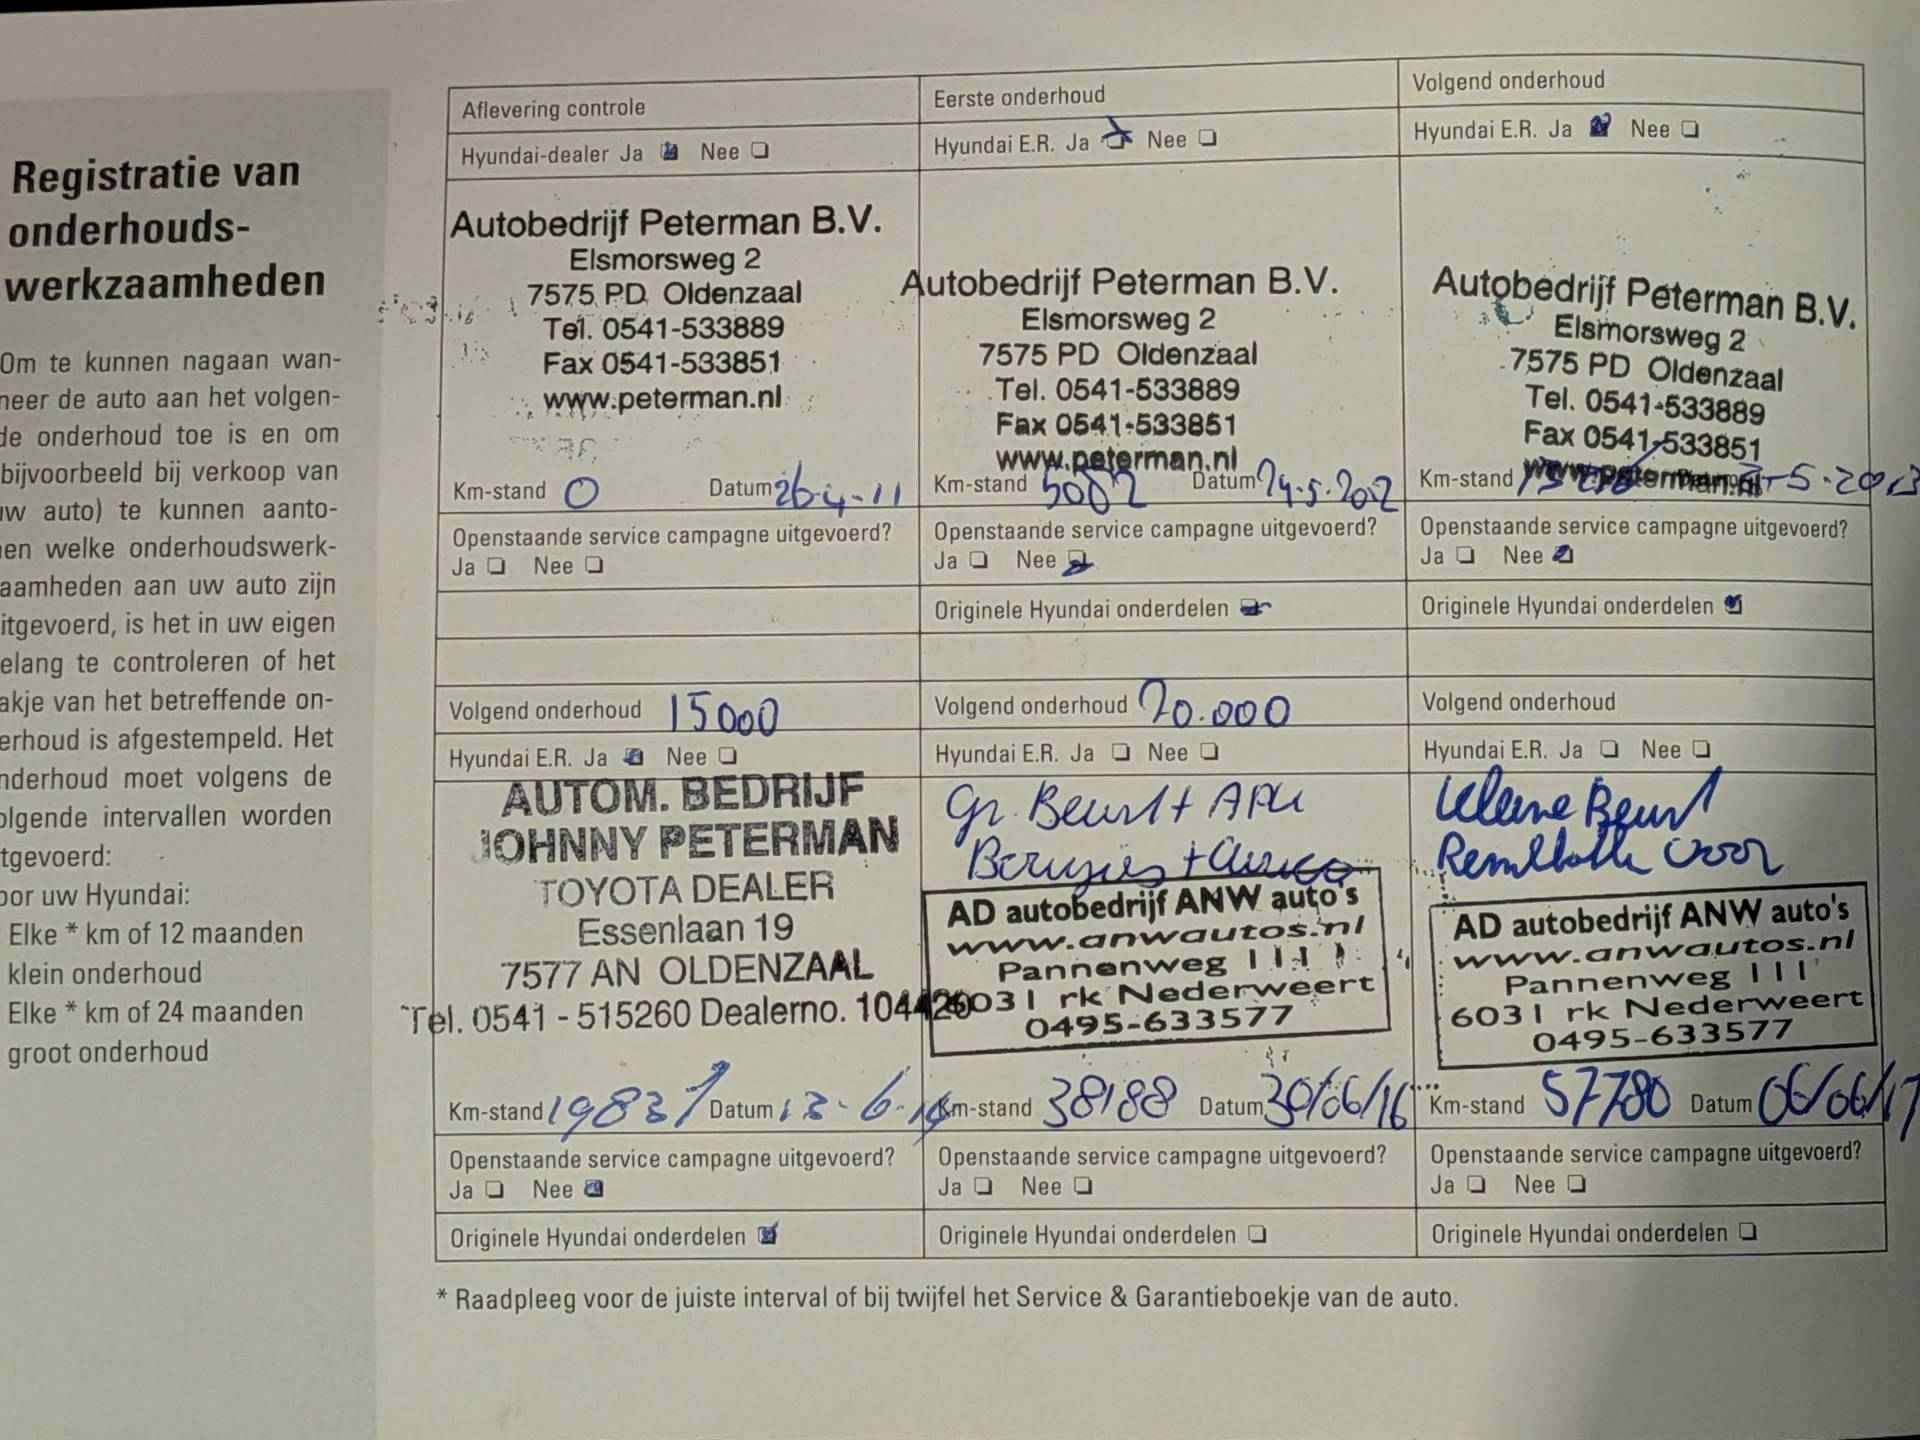 Registratie van
onderhouds-
werkzaamheden
Om te kunnen nagaan wan-
neer de auto aan het volgen-
de onderhoud toe is en om
bijvoorbeeld bij verkoop van
uw auto) te kunnen aanto-
nen welke onderhoudswerk-
aamheden aan uw auto zijn
itgevoerd, is het in uw eigen
elang te controleren of het
akje van het betreffende on-
erhoud is afgestempeld. Het
nderhoud moet volgens de
olgende intervallen worden
tgevoerd:
oor uw Hyundai:
Elke * km of 12 maanden
klein onderhoud
Elke * km of 24 maanden
groot onderhoud
Aflevering controle
Hyundai-dealer Ja Nee
Autobedrijf Peterman B.V.
Elsmorsweg 2
7575 PD Oldenzaal
Tel. 0541-533889
Fax 0541-533851
www.peterman.nl
Km-stand 0 Datum 26-4-11
Openstaande service campagne uitgevoerd?
Ja Nee
Eerste onderhoud
Hyundai E.R. Ja Nee
Autobedrijf Peterman B.V.
Elsmorsweg 2
7575 PD Oldenzaal
Tel. 0541-533889
Fax 0541-533851
www.peterman.nl
Km-stand 5002 Datum 24-5-2012
Openstaande service campagne uitgevoerd?
Ja Nee
Originele Hyundai onderdelen
Volgend onderhoud
Hyundai E.R. Ja Nee
Autobedrijf Peterman B.V.
Elsmorsweg 2
7575 PD Oldenzaal
Tel. 0541-533889
Fax 0541-533851
www.peterman.nl
Km-stand -5-2013
Openstaande service campagne uitgevoerd?
Ja Nee
Originele Hyundai onderdelen
Volgend onderhoud 15000
Hyundai E.R. Ja Nee
AUTOM. BEDRIJF
JOHNNY PETERMAN
TOYOTA DEALER
Essenlaan 19
7577 AN OLDENZAAL
Tel. 0541 - 515260 Dealerno. 104420
Km-stand 19837 Datum 13-6-14
Openstaande service campagne uitgevoerd?
Ja Nee
Originele Hyundai onderdelen
Volgend onderhoud 20.000
Hyundai E.R. Ja Nee
Gr. Beurt + APK
Bougies + Airco
AD autobedrijf ANW auto's
www.anwautos.nl
Pannenweg 111
6031 rk Nederweert
0495-633577
Km-stand 38188 Datum 30/06/16
Openstaande service campagne uitgevoerd?
Ja Nee
Originele Hyundai onderdelen
Volgend onderhoud
Hyundai E.R. Ja Nee
Kleine Beurt
Remblokken voor
AD autobedrijf ANW auto's
www.anwautos.nl
Pannenweg 111
6031 rk Nederweert
0495-633577
Km-stand 57780 Datum 06/06/17
Openstaande service campagne uitgevoerd?
Ja Nee
Originele Hyundai onderdelen
* Raadpleeg voor de juiste interval of bij twijfel het Service & Garantieboekje van de auto.